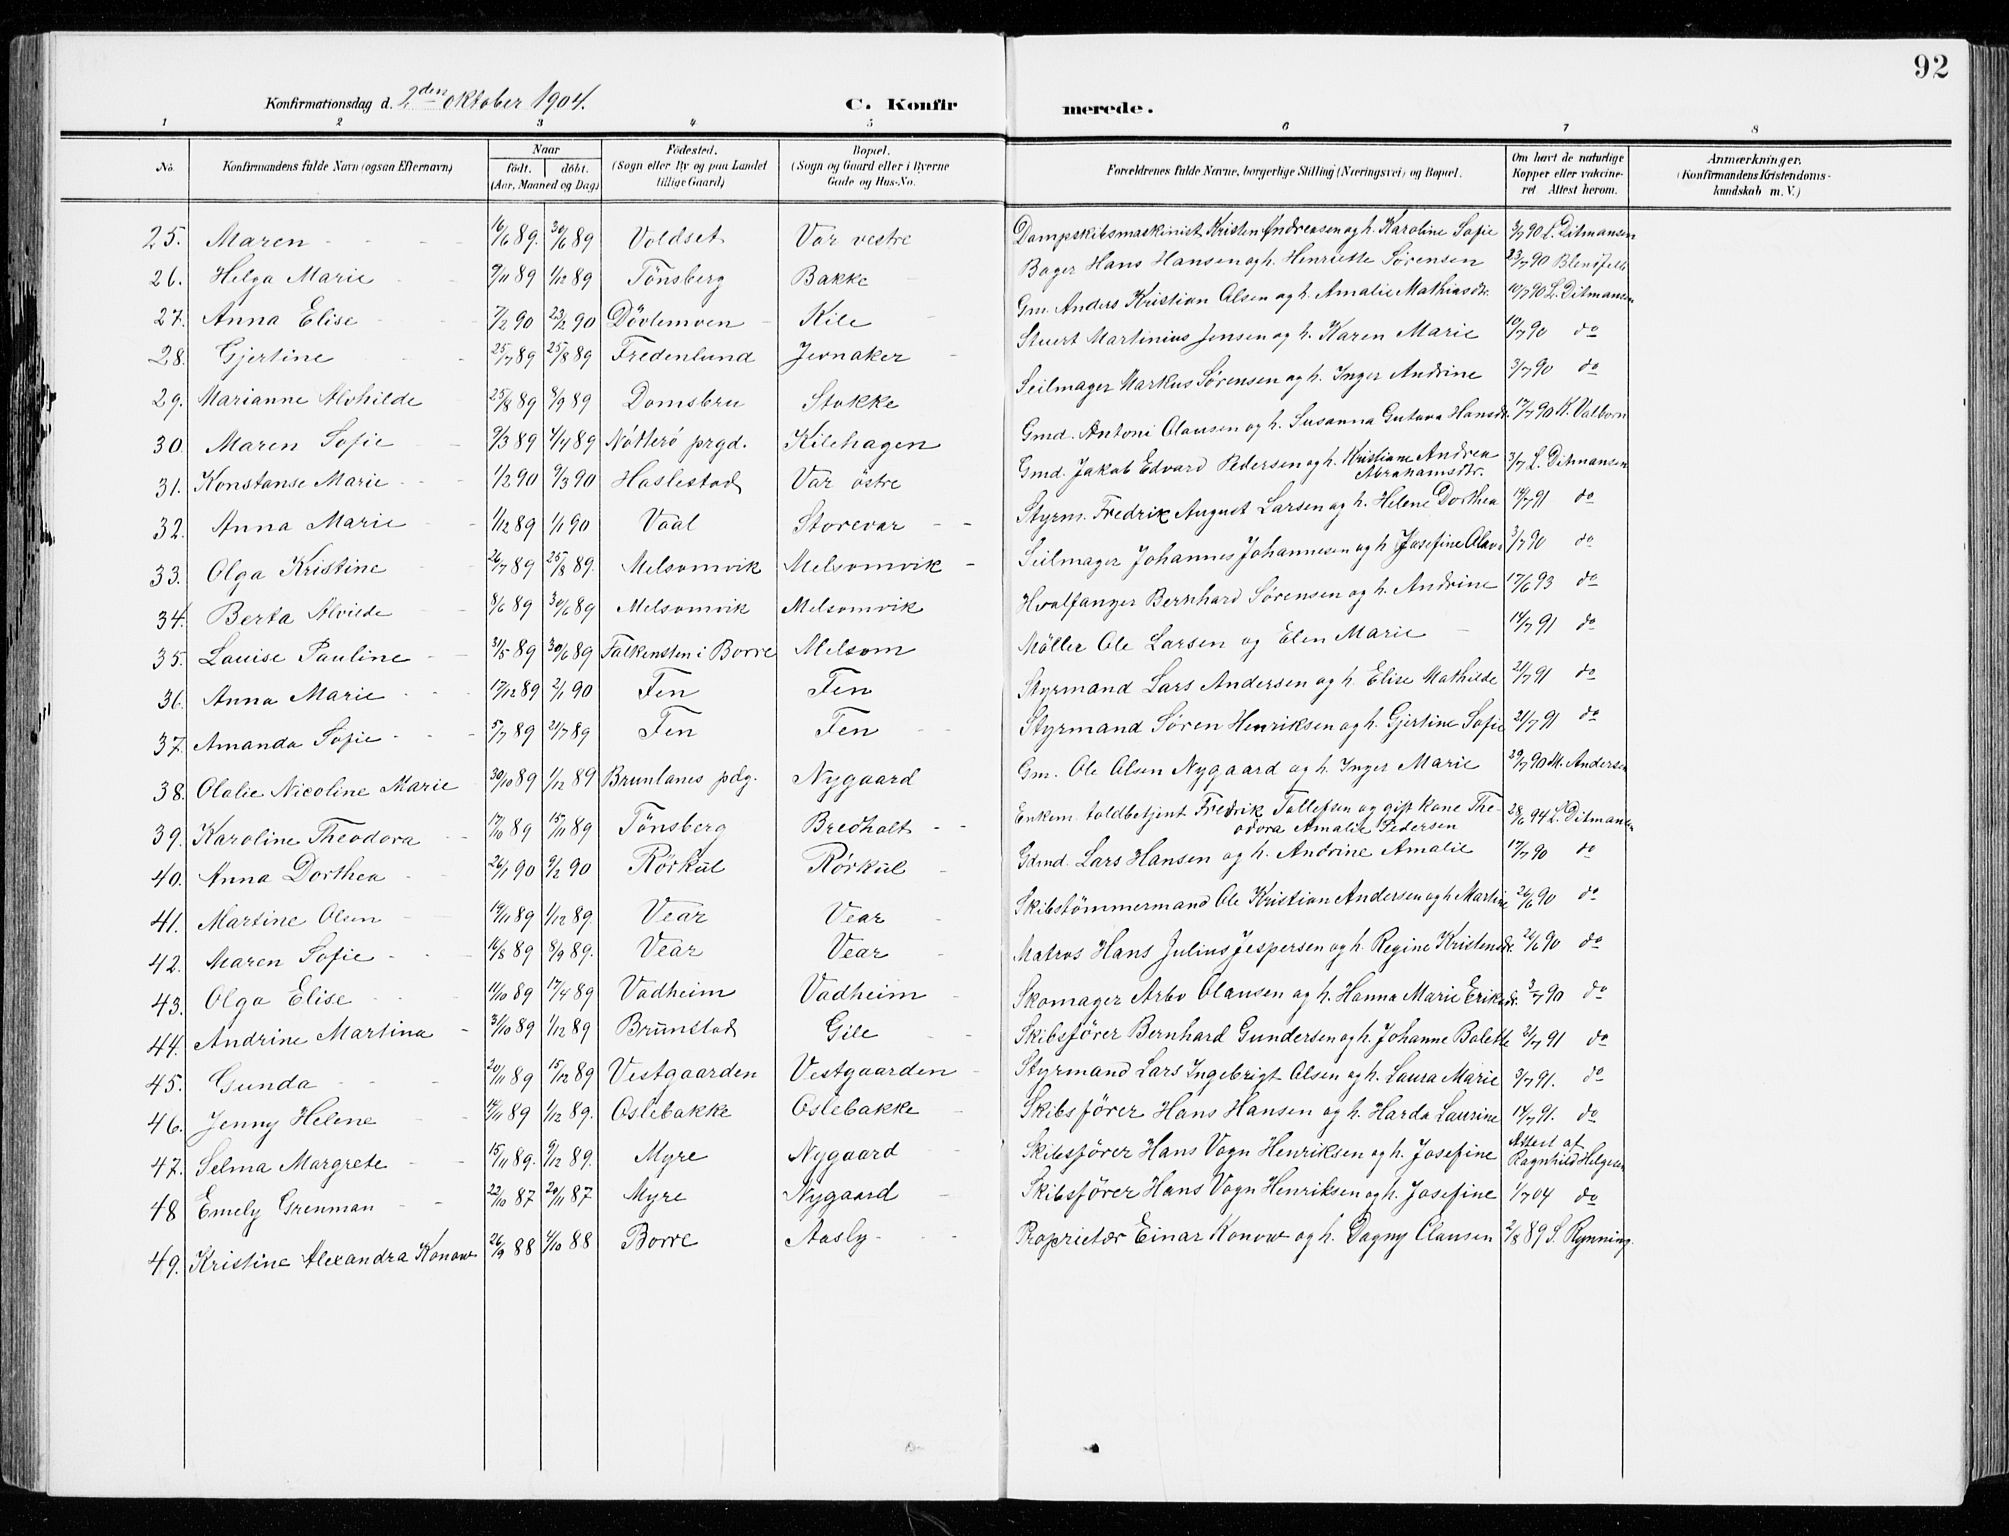 92
Konfirmationsdag d. 2den oktober 1904. C. Konfirmerede.
1 2 3 4 5 6 7 8
No. Konfirmandens fulde Navn (ogsaa Efternavn) Naar født. døbt. (Aar, Maaned og Dag) Fødested. (Sogn eller By og paa Landet tillige Gaard) Bopæl. (Sogn og Gaard eller i Byerne Gade og Hus-No. Forældrenes fulde Navne, borgerlige Stilling (Næringsvei) og Bopæl. Om havt de naturlige Kopper eller vakcineret Attest herom. Anmærkninger. (Konfirmandens Kristendomskundskab m. V.)
25. Maren 16/6 89. 30/6 89 Valdset Var vestre Dampskibsmaskinist Kristen Andreasen og h. Karoline Sofie 3/7 90 L. Ditmansen
26. Helga Marie 9/11 89 1/12 89 Tönsberg Bakke Bager Hans Hansen og h. Henriette Sørensen 23/7 90
27. Anna Elise 7/2 90 23/2 90 Dövlemoen Kile Gm. Anders Kristian Olsen og h. Amalie Mathiasdtr. 10/7 90 L. Ditmansen
28. Gjertine 25/7 89 25/8 89 Fredenlund Jernaker Stuert Martinius Jensen og h. Karen Marie 10/7 90 do
29. Marianne Alvhilde 25/8 89 8/9 89 Domsbru Stokke Seilmager Markus Sørensen og h. Inger Andrine 3/7 90 do
30. Maren Sofie 9/3 89 4/4 89 Nötterö prgd. Kilehagen Gmd. Antoni Olausen og h. Susanna Gustava Hansdtr. 17/7 90 K. Valborn
31. Konstanse Marie 1/2 90 9/3 90 Haslestad Var östre Gmd. Jakob Edvard Pedersen og h. Kristiane Andrea Abrahamsdtr. 3/7 L. Ditmansen
32. Anna Marie 1/12 89 1/1 90 Vaal Storevar Styrm. Fredrik August Larsen og h. Helene Dorthea 14/7 91 do
33. Olga Kristine 26/7 89 25/8 89. Melsomvik Melsomvik Seilmager Johannes Johannesen og h. Josefine Olava 3/7 90 do
34. Berta Alvilde 8/6 89 30/6 89 Melsomvik Melsomvik Hvalfanger Bernhard Sørensen og h. Andrine 17/6 93 do
35. Louise Pauline 31/5 89 30/6 89 Falkensten i Borre Melsom Møller Ole Larsen og Elen Marie 14/7 91 do
36. Anna Marie 17/12 89 2/1 90 Fen Fen Styrmand Lars Andersen og h. Elise Mathilde 21/7 91 do
37. Amanda Sofie 5/7 89 21/7 89 Fen Fen Styrmand Søren Henriksen og h. Gjertine Sofie 21/7 91 do
38. Olalie Nicoline Marie 30/10 89 1/12 89 Brunlanes pdg. Nygaard Gm. Ole Olsen Nygaard og h. Inger Marie 29/7 90 M. Andersen
39. Karoline Theodora 17/10 89 15/11 89 Tönsberg Bredholt Enkem. toldbetjent Fredrik Tollefsen og gift kone Theodora Amalie Pedersen 28/6 94 L. Ditmansen
40. Anna Dorthea 26/1 90 9/2 90 Rörkul Rörkul Gdmd. Lars Hansen og h. Andrine Amalie 17/7 90 do
41. Martine Olsen 14/11 89 1/12 89. Vear Vear Skibstömmermand Ole Kristian Andersen og h Martine 26/6 90 do
42. Maren Sofie 16/8 89 8/9 89. Vear Vear Matros Hans Julius Jespersen og h. Regine Kristensdtr 26/6 90 do
43. Olga Elise 11/10 89 17/4 89 Vadheim Vadheim Skomager Arbo Olausen og h. Hanna Marie Eriksdtr. 3/7 90 do
44. Andrine Martina 31/10 89 1/12 89 Brunstad Gile Skibsfører Bernhard Gundersen og h. Johanne Bolette 21/7 91 do
45. Gunda 20/11 89 15/12 89 Vestgaarden Vestgaarden Styrmand Lars Ingebrigt Olsen og h. Laura Marie 3/7 91. do
46. Jenny Helene 14/11 89 1/12 89. Oslebakke Oslebakke Skibsfører Hans Hansen og h. Harda Laurine 14/7 91. do
47. Selma Margrete 15/11 89. 9/12 89. Myre Nygaard Skibsfører Hans Vogn Henriksen og h. Josefine Attest af Ragnhild Helgesen
48 Emely Grenman 22/10 87 20/11 87 Myre Nygaard Skibsfører Hans Vogn Henriksen og h. Josefine 1/7 04 do
49. Kristine Alexandra Konow 26/9 88 4/10 88 Borre Aasly Proprietær Einar Konow og h. Dagny Clausen 2/8 89 S. Rynning.